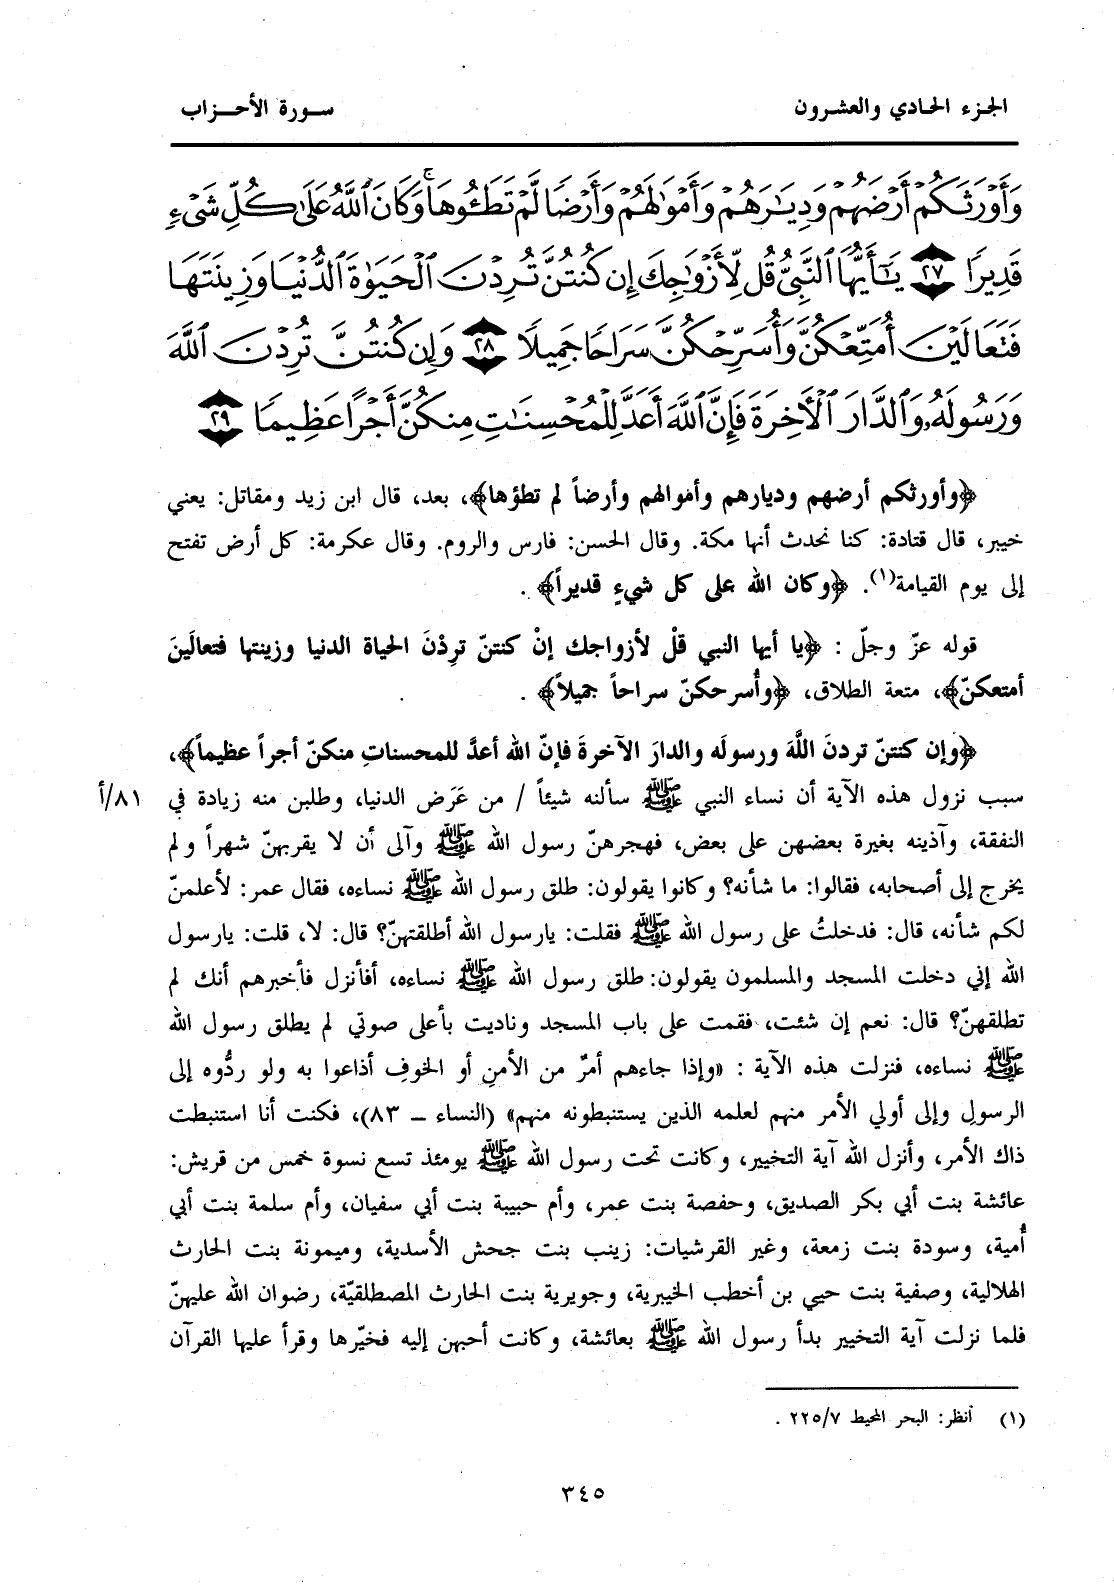 الجزء الحادي والعشرون
سورة الأحزاب
وَأَوْرَثَكُمْ أَرْضَهُمْ وَدِيَٰرَهُمْ وَأَمْوَٰلَهُمْ وَأَرْضًا لَّمْ تَطَـُٔوهَا ۚ وَكَانَ ٱللَّهُ عَلَىٰ كُلِّ شَىْءٍ
قَدِيرًا ٢٧ يَٰٓأَيُّهَا ٱلنَّبِىُّ قُل لِّأَزْوَٰجِكَ إِن كُنتُنَّ تُرِدْنَ ٱلْحَيَوٰةَ ٱلدُّنْيَا وَزِينَتَهَا
فَتَعَالَيْنَ أُمَتِّعْكُنَّ وَأُسَرِّحْكُنَّ سَرَاحًا جَمِيلًا ٢٨ وَإِن كُنتُنَّ تُرِدْنَ ٱللَّهَ
وَرَسُولَهُۥ وَٱلدَّارَ ٱلْأَخِرَةَ فَإِنَّ ٱللَّهَ أَعَدَّ لِلْمُحْسِنَٰتِ مِنكُنَّ أَجْرًا عَظِيمًا ٢٩
﴿وأورثكم أرضهم وديارهم وأموالهم وأرضاً لم تطؤها﴾، بعد، قال ابن زيد ومقاتل: يعني
خيبر، قال قتادة: كنا نحدث أنها مكة. وقال الحسن: فارس والروم. وقال عكرمة: كل أرض تفتح
إلى يوم القيامة(١). ﴿وكان الله على كل شيءٍ قديراً﴾ .
قوله عزّ وجلّ : ﴿يا أيها النبي قلْ لأزواجك إنْ كنتنّ تردْنَ الحياة الدنيا وزينتها فتعالَينَ
أمتعكنّ﴾، متعة الطلاق، ﴿وأُسرحكنّ سراحاً جميلاً﴾ .
﴿وإن كنتنّ تردنَ اللَّهَ ورسولَه والدارَ الآخرةَ فإنّ الله أعدَّ للمحسناتِ منكنّ أجراً عظيماً﴾،
سبب نزول هذه الآية أن نساء النبي ﷺ سألنه شيئاً / من عَرَض الدنيا، وطلبن منه زيادة في ٨١/أ
النفقة، وآذينه بغيرة بعضهن على بعض، فهجرهنّ رسول الله ﷺ وآلى أن لا يقربهنّ شهراً ولم
يخرج إلى أصحابه، فقالوا: ما شأنه؟ وكانوا يقولون: طلق رسول الله ﷺ نساءه، فقال عمر: لأعلمنّ
لكم شأنه، قال: فدخلتُ على رسول الله ﷺ فقلت: يارسول الله أطلقتهنّ؟ قال: لا، قلت: يارسول
الله إني دخلت المسجد والمسلمون يقولون: طلق رسول الله ﷺ نساءه، أفأنزل فأخبرهم أنك لم
تطلقهنّ؟ قال: نعم إن شئت، فقمت على باب المسجد وناديت بأعلى صوتي لم يطلق رسول الله
ﷺ نساءه، فنزلت هذه الآية : «وإذا جاءهم أمرٌ من الأمنِ أو الخوفِ أذاعوا به ولو ردُّوه إلى
الرسولِ وإلى أولي الأمر منهم لعلمه الذين يستنبطونه منهم» (النساء – ٨٣)، فكنت أنا استنبطت
ذاك الأمر، وأنزل الله آية التخيير، وكانت تحت رسول الله ﷺ يومئذ تسع نسوة خمس من قريش:
عائشة بنت أبي بكر الصديق، وحفصة بنت عمر، وأم حبيبة بنت أبي سفيان، وأم سلمة بنت أبي
أُمية، وسودة بنت زمعة، وغير القرشيات: زينب بنت جحش الأسدية، وميمونة بنت الحارث
الهلالية، وصفية بنت حيي بن أخطب الخيبرية، وجويرية بنت الحارث المصطلقيّة، رضوان الله عليهنّ
فلما نزلت آية التخيير بدأ رسول الله ﷺ بعائشة، وكانت أحبهن إليه فخيّرها وقرأ عليها القرآن
(١) أنظر: البحر المحيط ٢٢٥/٧ .
٣٤٥